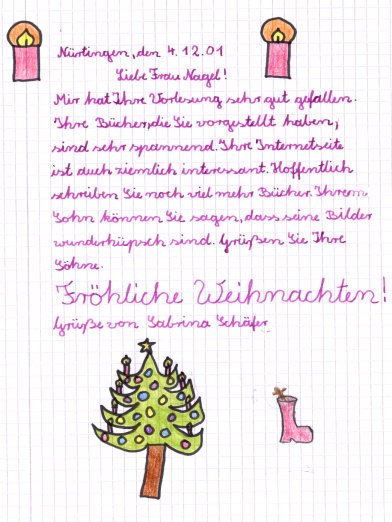 Nürtingen, den 4.12.01
Liebe Frau Nagel!
Mir hat Ihre Vorlesung sehr gut gefallen.
Ihre Bücher, die Sie vorgestellt haben,
sind sehr spannend. Ihre Internetseite
ist auch ziemlich interessant. Hoffentlich
schreiben Sie noch viel mehr Bücher. Ihrem
Sohn können Sie sagen, dass seine Bilder
wunderhüpsch sind. Grüßen Sie Ihre
Söhne.
Fröhliche Weihnachten!
Grüße von Sabrina Schäfer